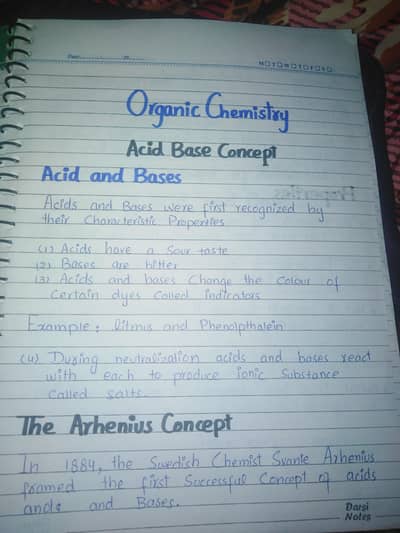 Organic Chemistry
Acid Base Concept
Acid and Bases
Acids and Bases were first recognized by
their Characteristic Properties
(1) Acids have a Sour taste
(2) Bases are bitter
(3) Acids and bases Change the Colour of
Certain dyes Called indicators
Example: litmus and Phenolpthalein
(4) During neutralization acids and bases react
with each to produce ionic Substance
Called salts.
The Arhenius Concept
In 1884, the Swedish Chemist Svanie Arhenius
framed the first Successful Concept of acids
and and Bases.
Darsi
Notes